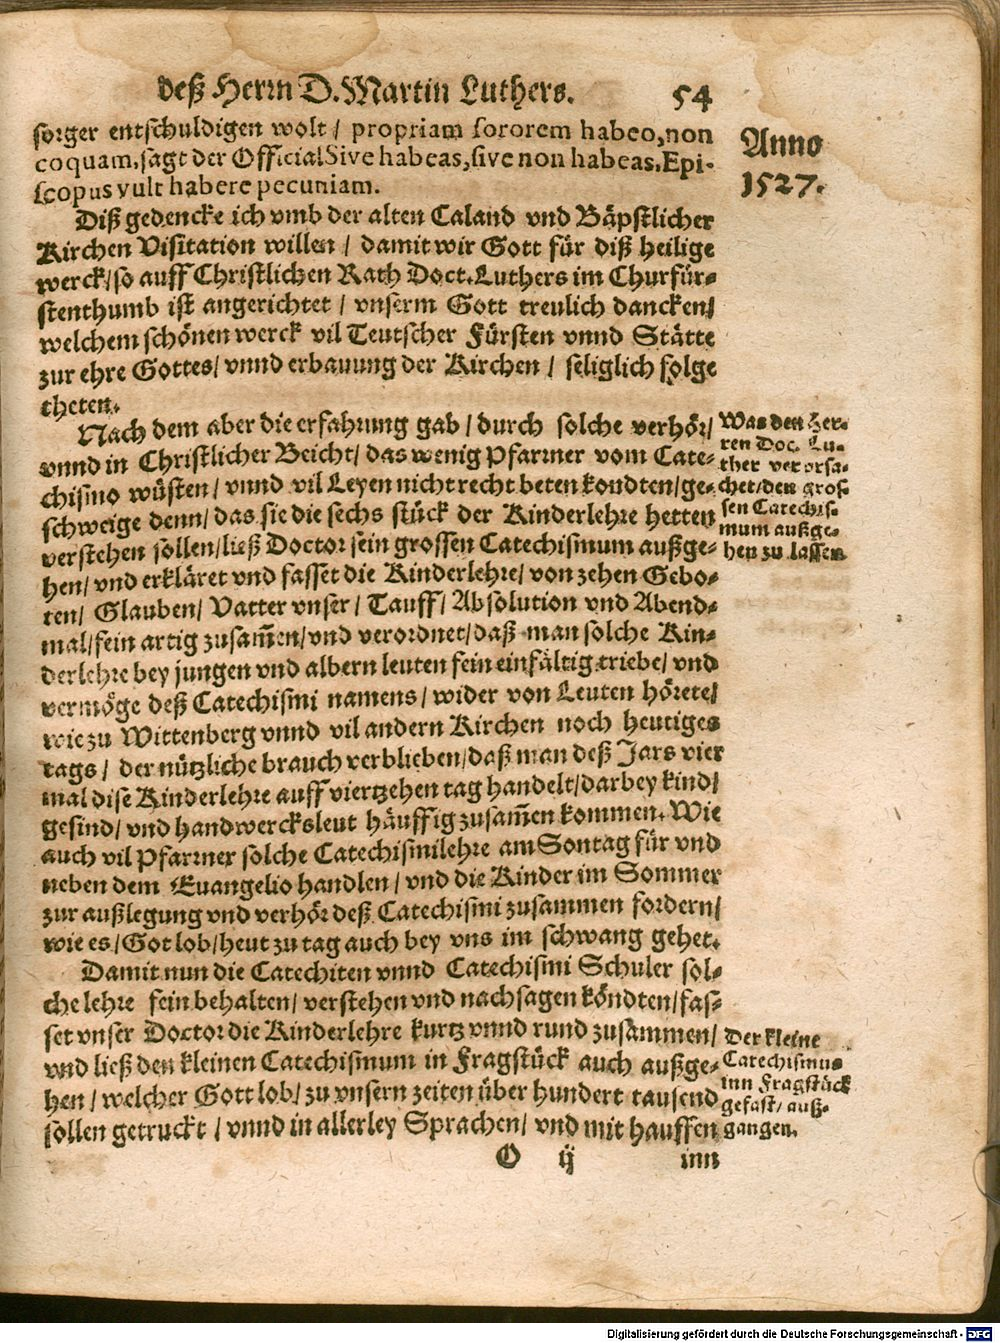 deß Herrn D. Martin Luthers. 54
Anno
1527.
sorger entschuldigen wolt / propriam sororem habeo, non
coquam, sagt der Official Sive habeas, sive non habeas. Epi-
scopus vult habere pecuniam.
Diß gedencke ich vmb der alten Caland vnd Bäpstlicher
Kirchen Visitation willen / damit wir Gott für diß heilige
werck / so auff Christlichen Rath Doct. Luthers im Churfür-
stenthumb ist angerichtet / vnserm Gott treulich dancken /
welchem schönen werck vil Teutscher Fürsten vnnd Stätte
zur ehre Gottes / vnnd erbauung der Kirchen / seliglich folge
theten.
Nach dem aber die erfahrung gab / durch solche verhör /
vnnd in Christlicher Beicht / das wenig Pfarrner vom Cate-
chismo wüsten / vnnd vil Leyen nicht recht beten kondten / ge-
schweige denn / das sie die sechs stück der Kinderlehre hetten
verstehen sollen / ließ Doctor sein grossen Catechismum außge-
hen / vnd erkläret vnd fasset die Kinderlehre / von zehen Gebo-
ten / Glauben / Vatter vnser / Tauff / Absolution vnd Abend-
mal / fein artig zusam̃en / vnd verordnet / daß man solche Kin-
derlehre bey jungen vnd albern leuten fein einfältig triebe / vnd
vermöge deß Catechismi namens / wider von Leuten hörete /
wie zu Wittenberg vnnd vil andern Kirchen noch heutiges
tags / der nützliche brauch verblieben / daß man deß Jars vier
mal dise Kinderlehre auff viertzehen tag handelt / darbey kind /
gesind / vnd handwercksleut häuffig zusam̃en kommen. Wie
auch vil Pfarrner solche Catechismilehre am Sontag für vnd
neben dem Euangelio handlen / vnd die Kinder im Sommer
zur außlegung vnd verhör deß Catechismi zusammen fordern /
wie es / Got lob / heut zu tag auch bey vns im schwang gehet.
Damit nun die Catechiten vnnd Catechismi Schuler sol-
che lehre fein behalten / verstehen vnd nachsagen köndten / fas-
set vnser Doctor die Kinderlehre kurtz vnnd rund zusammen /
vnd ließ den kleinen Catechismum in Fragstück auch außge-
hen / welcher Gott lob / zu vnsern zeiten über hundert tausend
sollen getruckt / vnnd in allerley Sprachen / vnd mit hauffen
O ij inn
Was den Her-
ren Doc. Lu-
ther verorsa-
chet / den gros-
sen Catechis-
mum außge-
hen zu lassen.
Der kleine
Catechismus
inn Fragstück
gefast / auß-
gangen.
Digitalisierung gefördert durch die Deutsche Forschungsgemeinschaft - DFG